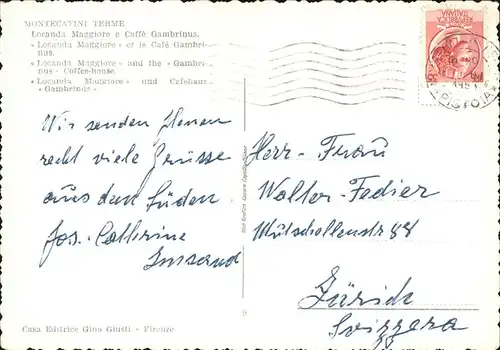 MONTECATINI TERME
Locanda Maggiore e Caffè Gambrinus.
« Locanda Maggiore » et le Café Gambri-
nus.
« Locanda Maggiore » and the « Gambri-
nus » Coffee-house
« Locanda Maggiore » und Cafehaus
« Gambrinus »
Wir senden Ihnen
recht viele Grüsse
aus dem Süden
Jos. Catherine
Imsand
Herr - Frau
Walter - Fedier
88
Zürich
Svizzera
9
Casa Editrice Gino Giusti - Firenze